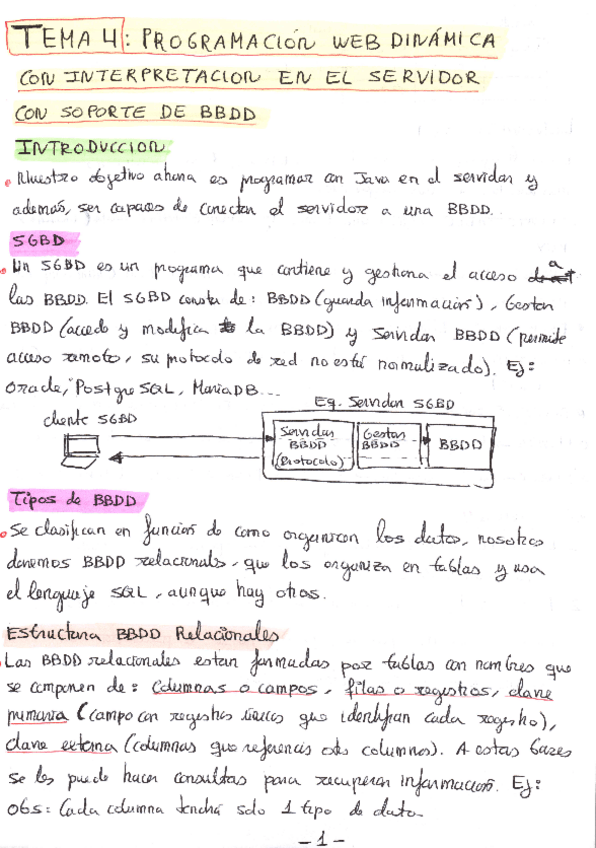 TEMA 4: PROGRAMACIÓN WEB DINÁMICA
CON INTERPRETACION EN EL SERVIDOR
CON SOPORTE DE BBDD
INTRODUCCION
• Nuestro objetivo ahora es programar con Java en el servidor y
además, ser capaces de conectar el servidor a una BBDD.
SGBD
• Un SGBD es un programa que contiene y gestiona el acceso a
las BBDD. El SGBD consta de: BBDD (guarda información), Gestor
BBDD (accede y modifica la BBDD) y Servidor BBDD (permite
acceso remoto, su protocolo de red no está normalizado). Ej:
Oracle, PostgreSQL, MariaDB...
Eq. Servidor SGBD
cliente SGBD
Servidor BBDD (Protocolo)
Gestor BBDD
BBDD
Tipos de BBDD
• Se clasifican en función de como organizan los datos, nosotros
daremos BBDD relacionales, que los organiza en tablas y usa
el lenguaje SQL, aunque hay otras.
Estructura BBDD Relacionales
Las BBDD relacionales estan formadas por tablas con nombres que
se componen de: columnas o campos, filas o registros, clave
primaria (campo con registros únicos que identifican cada registro),
clave externa (columnas que referencia otras columnas). A estas bases
se les puede hacer consultas para recuperar información. Ej:
Obs: Cada columna tendrá solo 1 tipo de dato
-1-